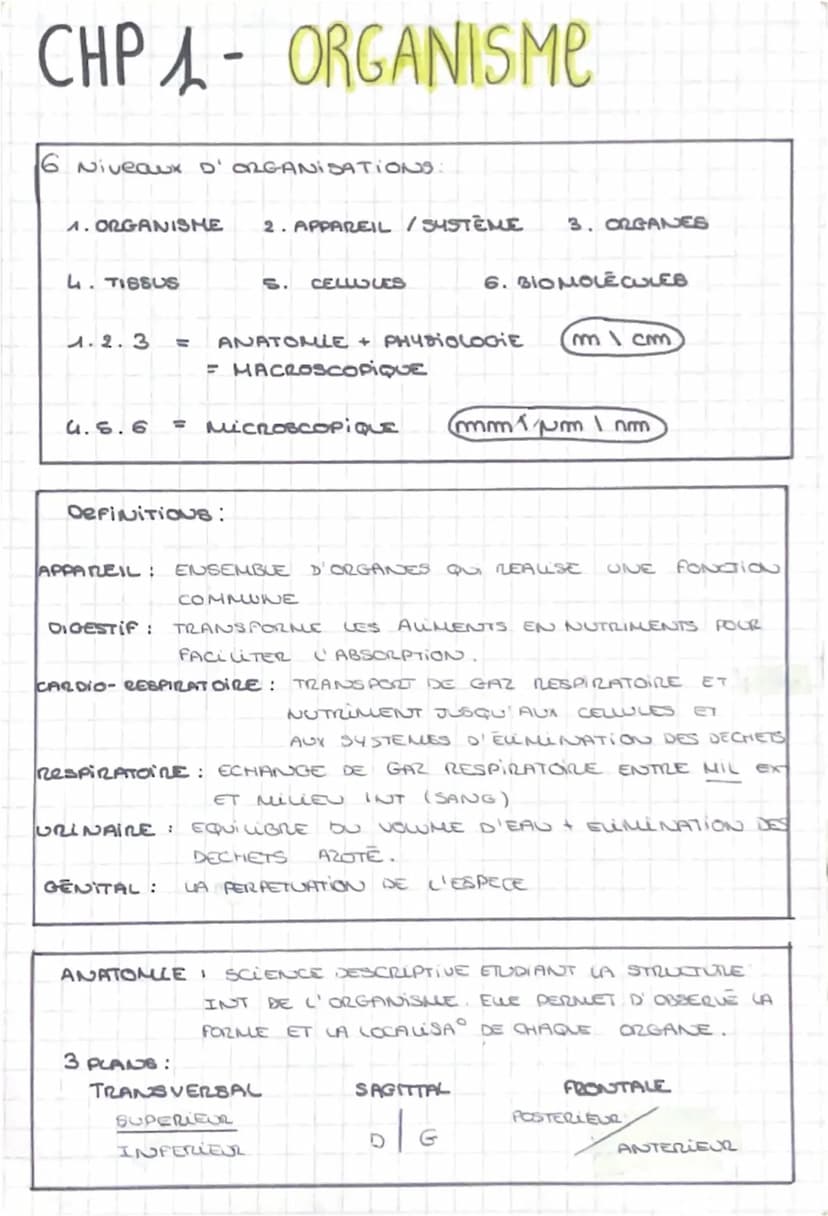 CHP 1 - ORGANISME
6 Niveaux D'ORGANISATIONS:
1. ORGANISME 2. APPAREIL / SYSTÈME 3. ORGANES
4. TISSUS 5. CELLULES 6. BIOMOLÉCULES
1.2.3 = ANATOMIE + PHYSIOLOGIE m \ cm
= MACROSCOPIQUE
4.5.6 = MICROSCOPIQUE mm \ µm \ nm
DEFINITIONS:
APPAREIL : ENSEMBLE D'ORGANES QUI REALISE UNE FONCTION
COMMUNE
DIGESTIF : TRANSFORME LES ALIMENTS EN NUTRIMENTS POUR
FACILITER L'ABSORPTION.
CARDIO-RESPIRATOIRE : TRANSPORT DE GAZ RESPIRATOIRE ET
NUTRIMENT JUSQU'AUX CELLULES ET
AUX SYSTEMES D'ELIMINATION DES DECHETS
RESPIRATOIRE : ECHANGE DE GAZ RESPIRATOIRE ENTRE MIL EXT
ET MILIEU INT (SANG)
URINAIRE : EQUILIBRE DU VOLUME D'EAU + ELIMINATION DES
DECHETS AZOTÉ.
GÉNITAL : LA PERPETUATION DE L'ESPECE
ANATOMIE : SCIENCE DESCRIPTIVE ETUDIANT LA STRUCTURE
INT DE L'ORGANISME. ELLE PERMET D'OBSERVÉ LA
FORME ET LA LOCALISA° DE CHAQUE ORGANE.
3 PLANS :
TRANSVERSAL SAGITTAL FRONTALE
SUPERIEUR POSTERIEUR
INFERIEUR D | G ANTERIEUR